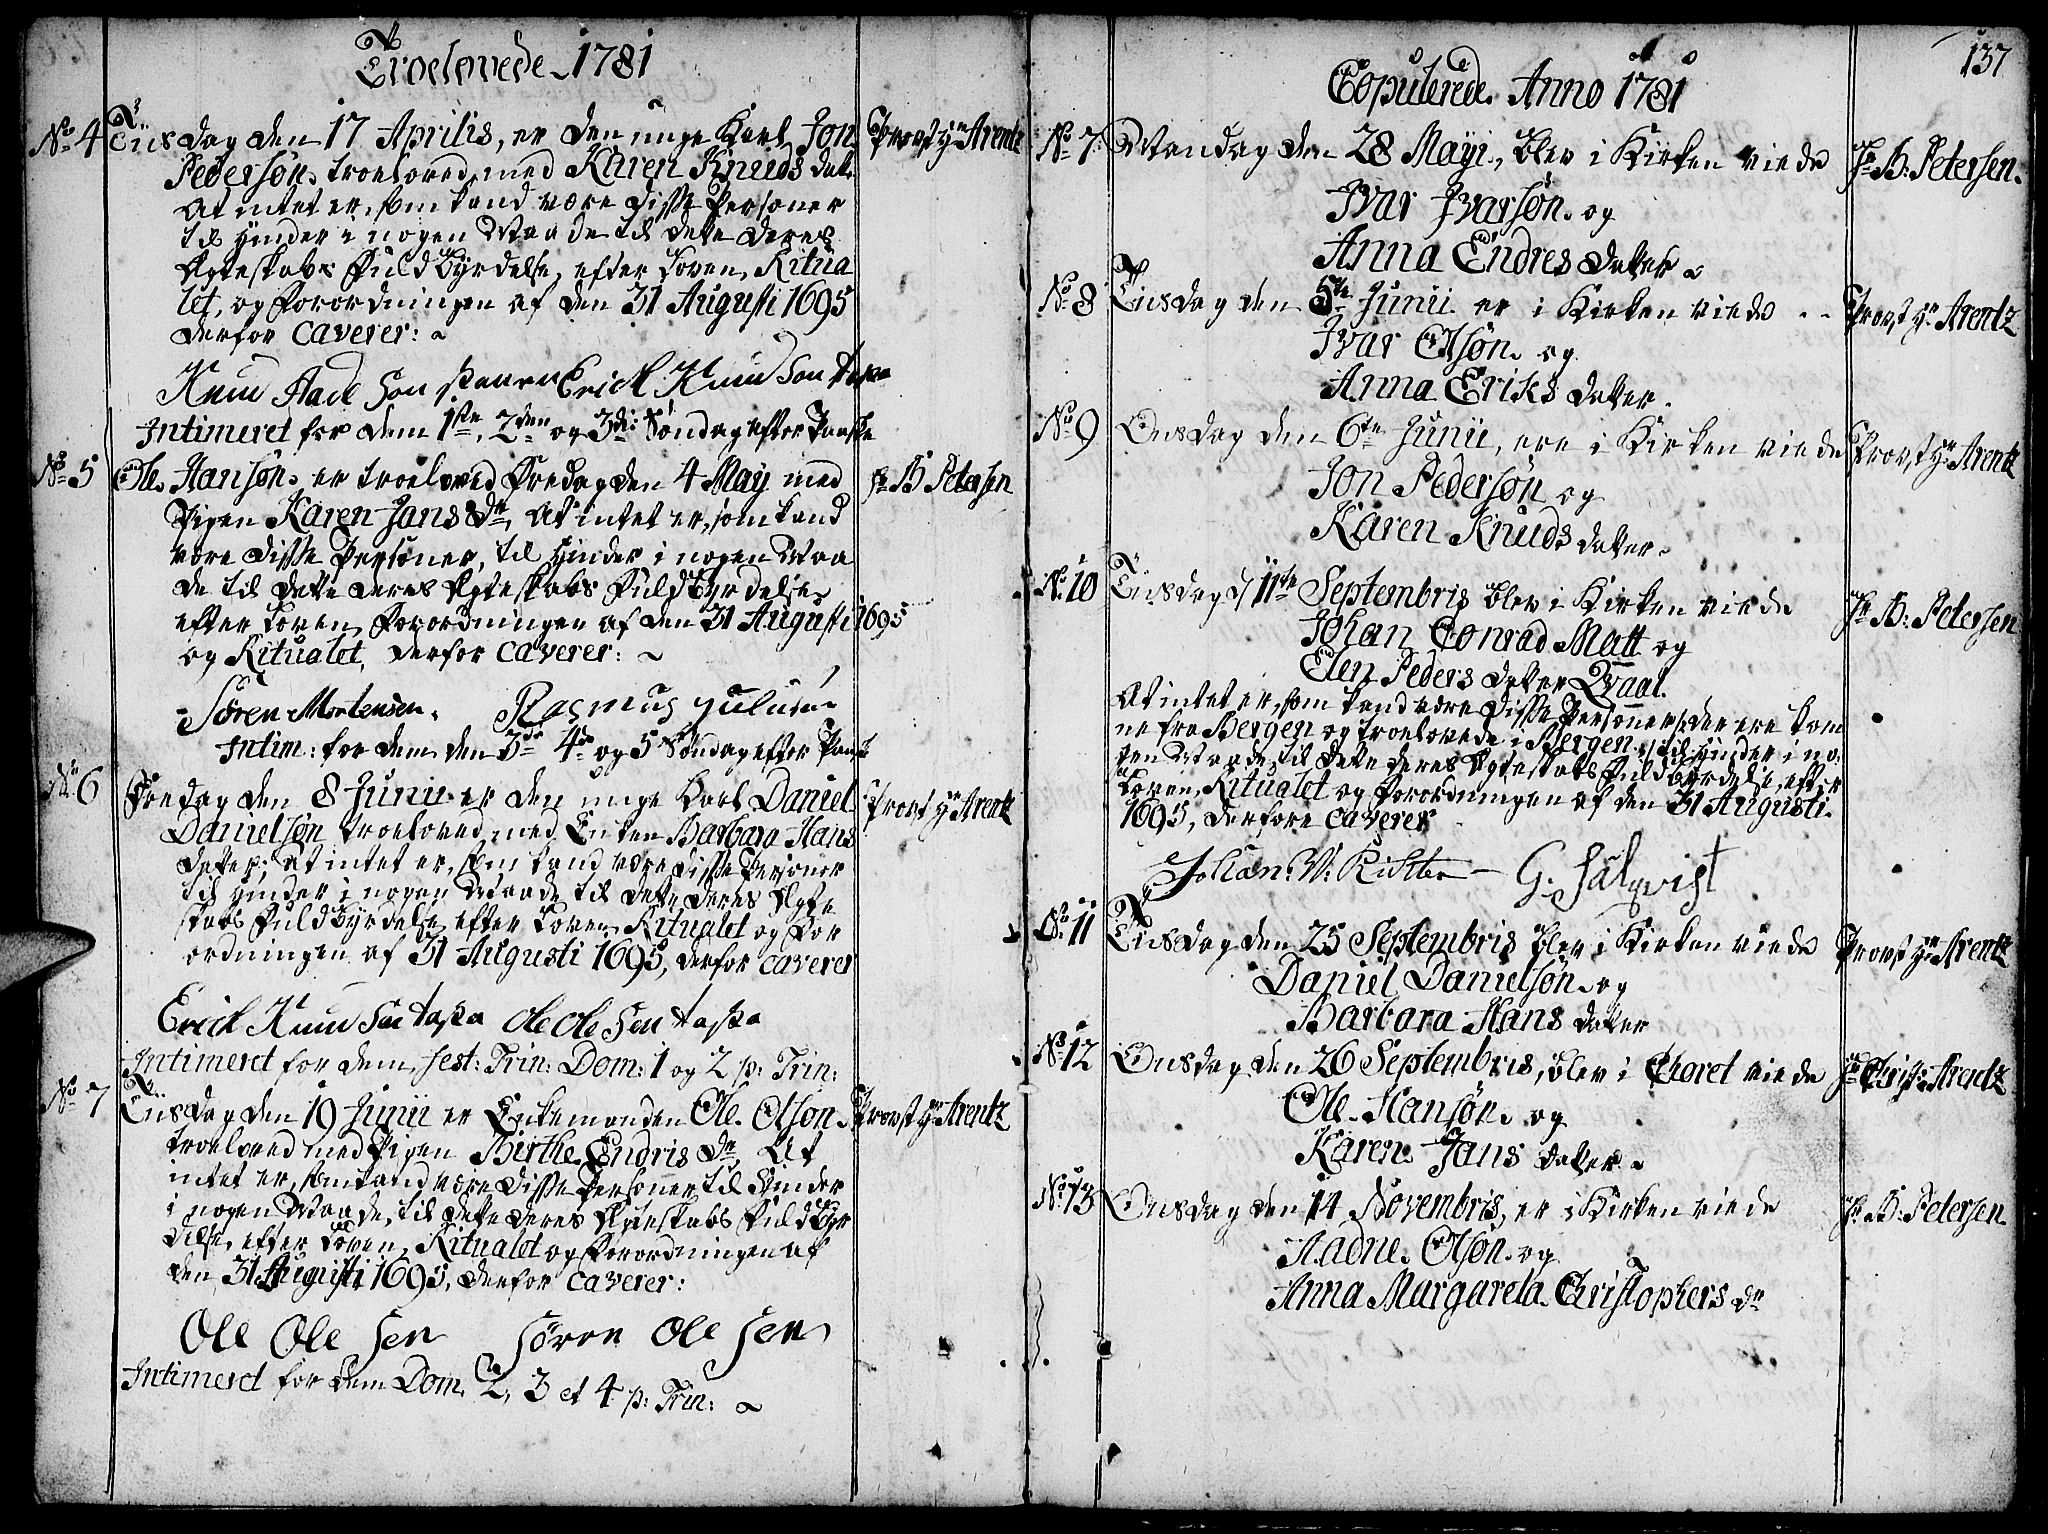 Troelovede 1781
No 4 Tiisdag den 17 Aprilis, er den unge Karl Jon Provst Hr Arentz
Pedersøn troeloved med Karen Knuds dat.
At intet er, som kand være disse Personer
til Hinder i nogen Maade til dette deres
Ægteskabs Fuldbyrdelse, efter Loven, Ritua
let, og Forordningen af den 31 Augusti 1695
derfor caverer:
Erick Knudson
Intimeret for dem 1ste, 2den og 3die Søndag efter Paaske
No 5 Ole Hansøn er troeloved Fredag den 4 May med Hr B Petersen
Pigen Karen Jans Dr, At intet er, som kand
være disse Personer, til Hinder i nogen Maa
de til dette deres Ægteskabs Fuldbyrdelse
efter Loven, Forordningen af den 31 Augusti 1695
og Ritualet, derfor caverer:
Søren Mortensen. Rasmus
Intim: for dem den 3de 4de og 5 Søndag efter Paask
No 6 Fredag den 8 Junii er den unge Karl Daniel Provst Hr Arentz
Danielsøn troeloved med Enken Barbara Hans
datter; at intet er, som kand være disse Personer
til Hinder i nogen Maade til dette deres Ægte
skabs Fuldbyrdelse efter Loven, Ritualet og For
ordningen af 31 Augusti 1695, derfor caverer
Erick Knudsen Taspa Ole Olesen Taspa
Intimeret for dem Fest: Trin: Dom: 1 og 2 p: Trin:
No 7 Tiisdag den 19 Junii er Enkemanden Ole Olson Provst Hr Arentz
troeloved med Pigen Birthe Endris Dr, At
intet er, som kand være disse Personer til Hinder
i nogen Maade, til dette deres Ægteskabs Fuldbyr
delse, efter Loven, Ritualet og Forordningen af
den 31 Augusti 1695, derfor caverer:
Ole Olesen Sören Olesen
Intimeret for dem Dom. 2, 3 et 4 p: Trin:
137
Copulerede Anno 1781
No 7 Mandag den 28 Mayi, blev i Kirken viede Hr B: Petersen.
Ivar Ivarsøn og
Anna Endres datter
No 8 Tiisdag den 5te Junii er i Kirken viede Provst Hr Arentz
Ivar Olsøn og
Anna Eriks datter.
No 9 Onsdag den 6te Junii, ere i Kirken viede Provst Hr Arentz
Jon Pedersøn og
Karen Knuds datter
No 10 Tiisdag d 11te Septembris blev i Kirken viede Hr B: Petersen
Johan Conrad Matt og
Elen Peders datter Qvaal.
At intet er, som kand være disse Personer, der ere kom
ne fra Bergen og troelovede i Bergen, til Hinder i no:
gen Maade til dette deres Ægteskabs Fuldbyrdelse, efter
Loven, Ritualet og Forordningen af den 31 Augusti
1695, derfore caverer
Johan: W: Richter G. Salqvist
No 11 Tiisdag den 25 Septembris blev i Kirken viede Provst Hr Arentz
Daniel Danielsøn og
Barbara Hans datter
No 12 Onsdag den 26 Septembris, blev i Choret viede Hr Christ: Arentz
Ole Hansøn og
Karen Jans datter
No 13 Onsdag den 14 Novembris, er i Kirken viede Hr B: Petersen
Aadne Olsøn og
Anna Margareta Christophers Dr